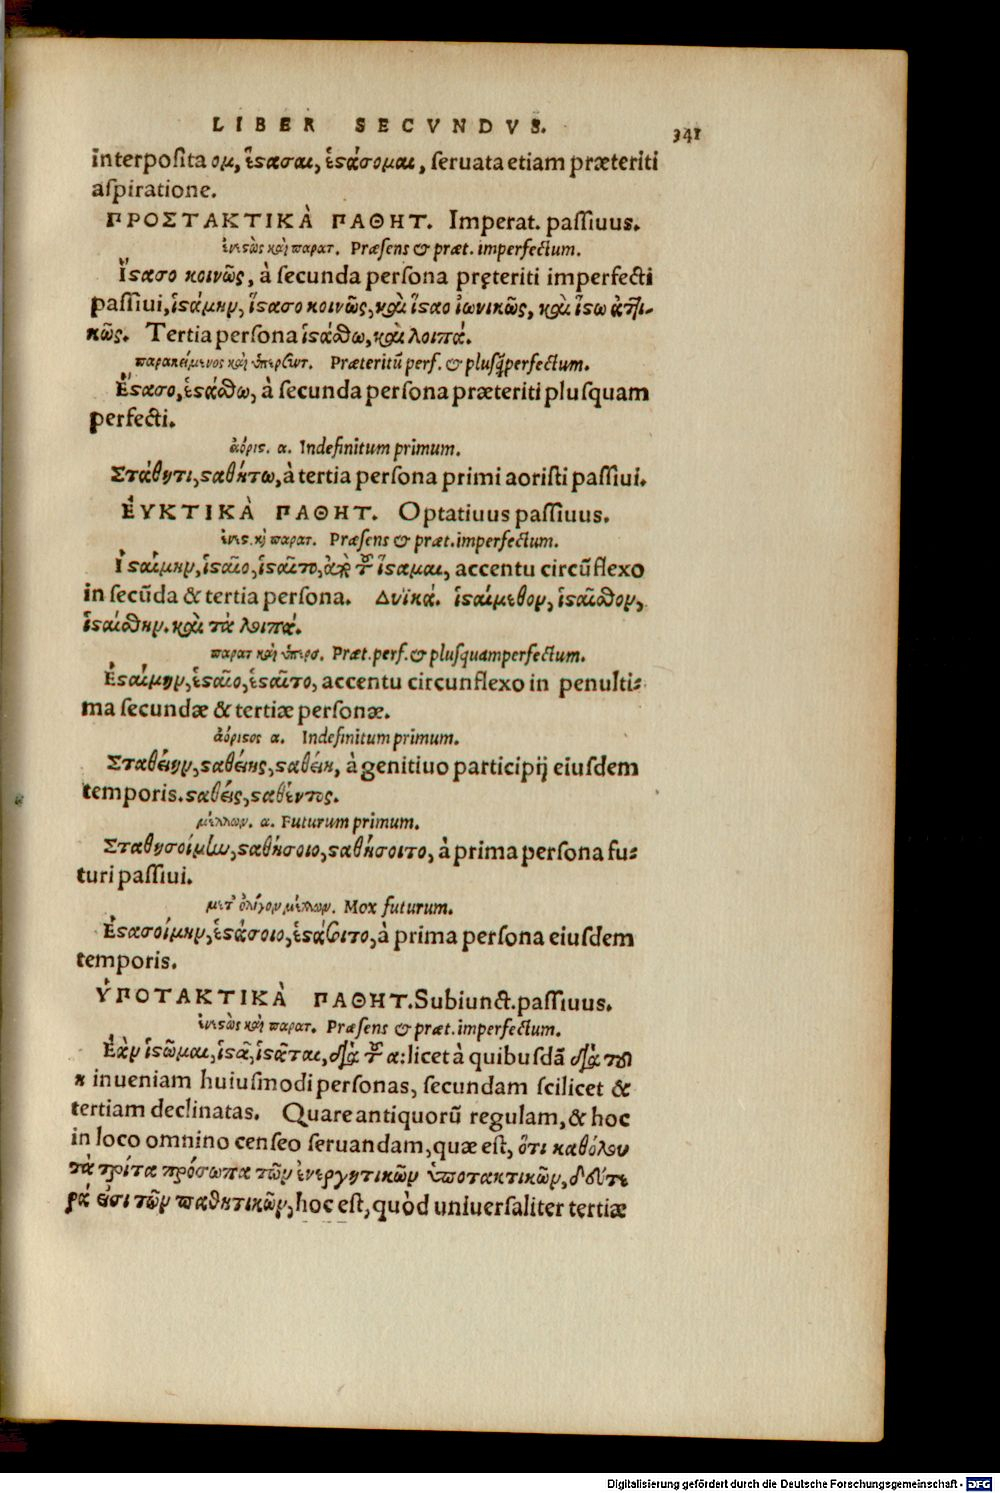 LIBER SECVNDVS. 341
interposita ομ, ἕστασαι, ἑστάσομαι, seruata etiam præteriti
aspiratione.
ΠΡΟΣΤΑΚΤΙΚᾺ ΠΑΘΗΤ. Imperat. passiuus.
ἐνεστὼς καὶ παρατ. Præsens & præt. imperfectum.
Ἵστασο κοινῶς, à secunda persona pręteriti imperfecti
passiui, ἱστάμην, ἵστασο κοινῶς, καὶ ἵσταο ἰωνικῶς, καὶ ἵστω ἀττι-
κῶς. Tertia persona ἱστάσθω, καὶ λοιπά.
παρακείμενος καὶ ὑπερσυντ. Præteritũ perf. & plusq̃perfectum.
Ἕστασο, ἑστάσθω, à secunda persona præteriti plusquam
perfecti.
ἀόριστ. α. Indefinitum primum.
Στάθητι, σταθήτω, à tertia persona primi aoristi passiui.
ἘΥΚΤΙΚᾺ ΠΑΘΗΤ. Optatiuus passiuus.
ἐνεστ. κὶ παρατ. Præsens & præt. imperfectum.
Ἱσταίμην, ἱσταῖο, ἱσταῖτο, ἀπὸ τοῦ ἵσταμαι, accentu circũflexo
in secũda & tertia persona. Δυϊκά. ἱσταίμεθον, ἱσταῖσθον,
ἱσταίσθην. καὶ τὰ λοιπά.
παρατ καὶ ὑπερσ. Præt. perf. & plusquamperfectum.
Ἑσταίμην, ἑσταῖο, ἑσταῖτο, accentu circunflexo in penulti-
ma secundæ & tertiæ personæ.
ἀόριστος α. Indefinitum primum.
Σταθείην, σταθείης, σταθείη, à genitiuo participij eiusdem
temporis. σταθείς, σταθέντος.
μέλλων. α. Futurum primum.
Σταθησοίμην, σταθήσοιο, σταθήσοιτο, à prima persona fu-
turi passiui.
μετ' ὀλίγον μέλλων. Mox futurum.
Ἑστασοίμην, ἑστάσοιο, ἑστάσοιτο, à prima persona eiusdem
temporis.
ὙΠΟΤΑΚΤΙΚᾺ ΠΑΘΗΤ. Subiunct. passiuus.
ἐνεστὼς καὶ παρατ. Præsens & præt. imperfectum.
Ἐὰν ἱστῶμαι, ἱστᾷ, ἱστᾶται, διὰ τοῦ α: licet à quibusdã διὰ τοῦ
η inueniam huiusmodi personas, secundam scilicet &
tertiam declinatas. Quare antiquorũ regulam, & hoc
in loco omnino censeo seruandam, quæ est, ὅτι καθόλου
τὰ τρίτα πρόσωπα τῶν ἐνεργητικῶν ὑποτακτικῶν, δεύτε
ρά εἰσι τῶν παθητικῶν, hoc est, quòd uniuersaliter tertiæ
Digitalisierung gefördert durch die Deutsche Forschungsgemeinschaft - DFG